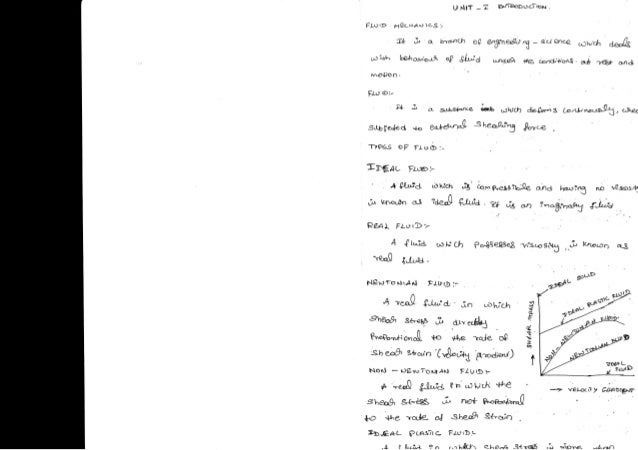 UNIT - I INTRODUCTION.
FLUID MECHANICS :-
It is a branch of engineering - science which deals
with behaviour of fluid under the conditions at rest and
motion.
FLUID :-
It is a substance which deforms continuously, when
subjected to external shearing force.
TYPES OF FLUID :-
IDEAL FLUID :-
A fluid which is compressible and having no viscosity
is known as ideal fluid. It is an imaginary fluid
REAL FLUID :-
A fluid which possesses viscosity, is known as
real fluid.
NEWTONIAN FLUID :-
A real fluid in which
shear stress is directly
proportional to the rate of
shear strain (velocity gradient)
NON - NEWTONIAN FLUID :-
A real fluid in which the
shear stress is not proportional
to the rate of shear strain.
IDEAL PLASTIC FLUID :-
A fluid in which shear stress is more than
IDEAL SOLID
IDEAL PLASTIC FLUID
NON - NEWTONIAN FLUID
NEWTONIAN FLUID
IDEAL FLUID
SHEAR STRESS
→ VELOCITY GRADIENT